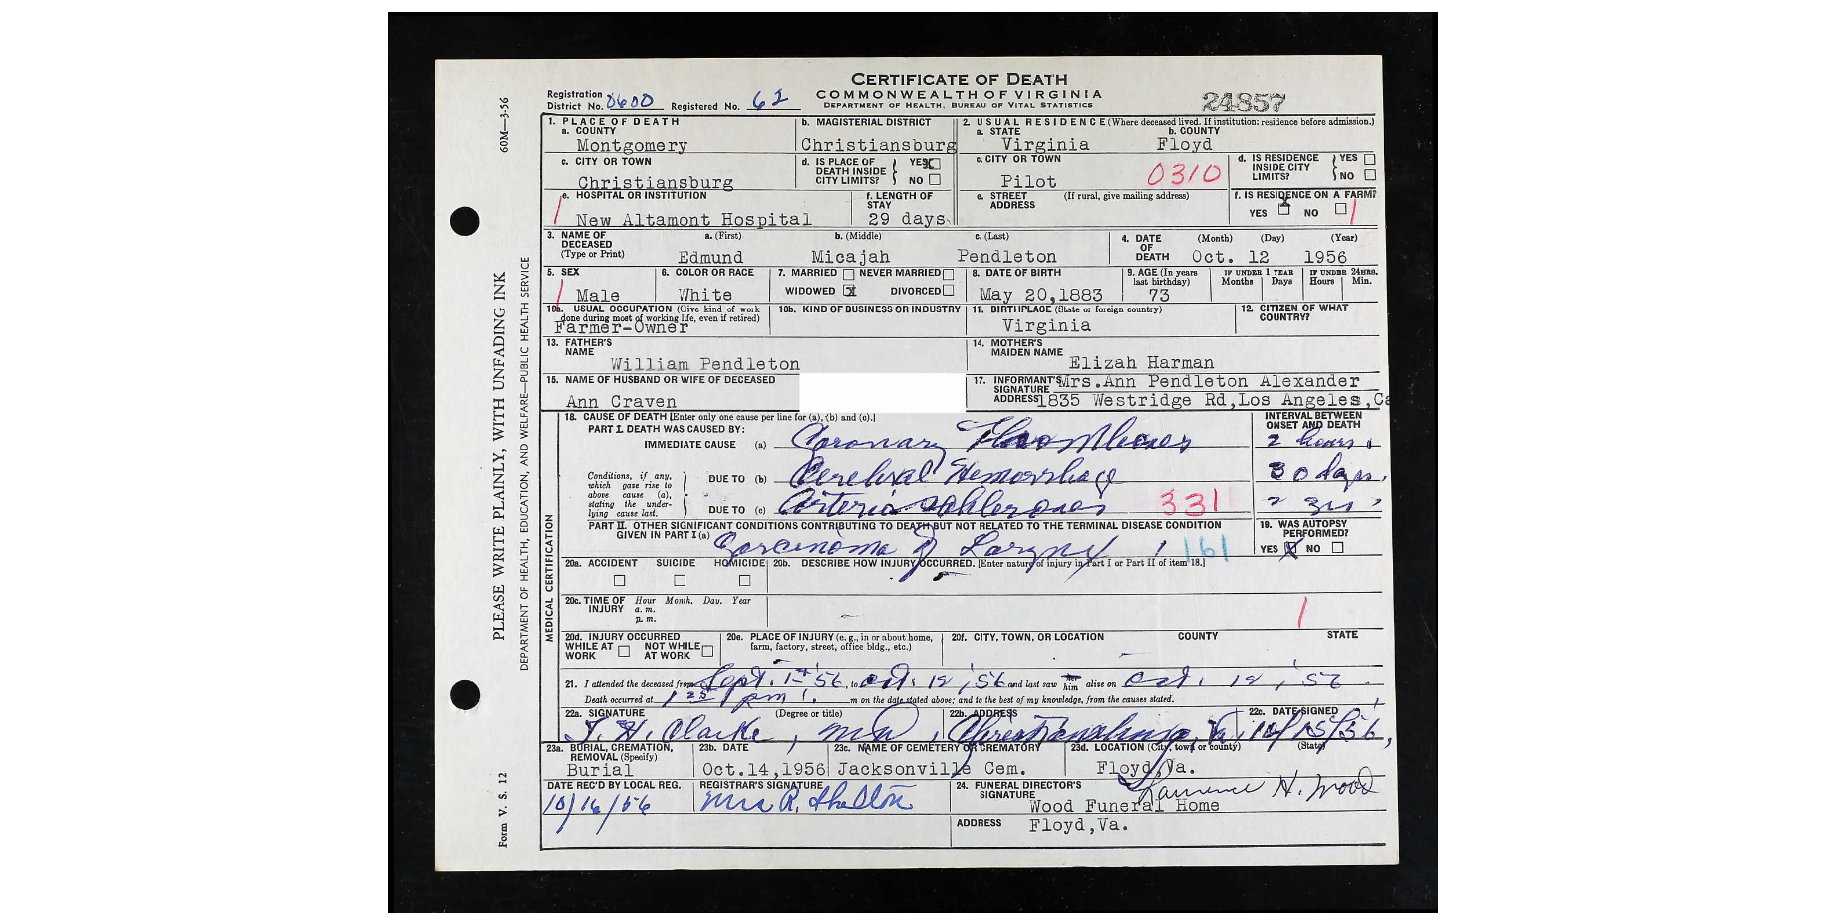 CERTIFICATE OF DEATH
COMMONWEALTH OF VIRGINIA
DEPARTMENT OF HEALTH, BUREAU OF VITAL STATISTICS
24857
Registration District No. 0600 Registered No. 62
60M—3-56
PLEASE WRITE PLAINLY, WITH UNFADING INK
DEPARTMENT OF HEALTH, EDUCATION, AND WELFARE—PUBLIC HEALTH SERVICE
Form V. S. 12
1. PLACE OF DEATH
a. COUNTY
Montgomery
b. MAGISTERIAL DISTRICT
Christiansburg
2. USUAL RESIDENCE (Where deceased lived. If institution: residence before admission.)
a. STATE
Virginia
b. COUNTY
Floyd
c. CITY OR TOWN
Christiansburg
d. IS PLACE OF DEATH INSIDE CITY LIMITS? YES NO
c. CITY OR TOWN
Pilot
0310
d. IS RESIDENCE INSIDE CITY LIMITS? YES NO
e. HOSPITAL OR INSTITUTION
New Altamont Hospital
f. LENGTH OF STAY
29 days
e. STREET ADDRESS (If rural, give mailing address)
f. IS RESIDENCE ON A FARM?
YES NO
3. NAME OF DECEASED (Type or Print)
a. (First) b. (Middle) c. (Last)
Edmund Micajah Pendleton
4. DATE OF DEATH (Month) (Day) (Year)
Oct. 12 1956
5. SEX
Male
6. COLOR OR RACE
White
7. MARRIED NEVER MARRIED
WIDOWED X DIVORCED
8. DATE OF BIRTH
May 20,1883
9. AGE (In years last birthday)
73
IF UNDER 1 YEAR
Months Days
IF UNDER 24HRS.
Hours Min.
10a. USUAL OCCUPATION (Give kind of work done during most of working life, even if retired)
Farmer-Owner
10b. KIND OF BUSINESS OR INDUSTRY
11. BIRTHPLACE (State or foreign country)
Virginia
12. CITIZEN OF WHAT COUNTRY?
13. FATHER'S NAME
William Pendleton
14. MOTHER'S MAIDEN NAME
Elizah Harman
15. NAME OF HUSBAND OR WIFE OF DECEASED
Ann Craven
17. INFORMANT'S SIGNATURE Mrs.Ann Pendleton Alexander
ADDRESS 1835 Westridge Rd,Los Angeles,Ca
MEDICAL CERTIFICATION
18. CAUSE OF DEATH [Enter only one cause per line for (a), (b) and (c).]
INTERVAL BETWEEN ONSET AND DEATH
PART I. DEATH WAS CAUSED BY:
IMMEDIATE CAUSE (a) Coronary Thrombosis 2 hours
Conditions, if any, which gave rise to above cause (a), stating the under-lying cause last.
DUE TO (b) Cerebral Hemorrhage 30 days
DUE TO (c) 331
PART II. OTHER SIGNIFICANT CONDITIONS CONTRIBUTING TO DEATH BUT NOT RELATED TO THE TERMINAL DISEASE CONDITION GIVEN IN PART I (a)
Carcinoma of Larynx 161
19. WAS AUTOPSY PERFORMED?
YES X NO
20a. ACCIDENT SUICIDE HOMICIDE
20b. DESCRIBE HOW INJURY OCCURRED. [Enter nature of injury in Part I or Part II of item 18.]
20c. TIME OF INJURY Hour Month, Day, Year
a. m.
p. m.
20d. INJURY OCCURRED
WHILE AT WORK NOT WHILE AT WORK
20e. PLACE OF INJURY (e. g., in or about home, farm, factory, street, office bldg., etc.)
20f. CITY, TOWN, OR LOCATION COUNTY STATE
21. I attended the deceased from Sept. 1st '56, to Oct. 12, '56 and last saw her him alive on Oct. 12, '56
Death occurred at 1 25 pm m on the date stated above; and to the best of my knowledge, from the causes stated.
22a. SIGNATURE (Degree or title)
Clarke, MD
22b. ADDRESS
Christiansburg, Va.
22c. DATE SIGNED
10/15/56
23a. BURIAL, CREMATION, REMOVAL (Specify)
Burial
23b. DATE
Oct.14,1956
23c. NAME OF CEMETERY OR CREMATORY
Jacksonville Cem.
23d. LOCATION (City, town or county) (State)
Floyd,Va.
DATE REC'D BY LOCAL REG.
10/16/56
REGISTRAR'S SIGNATURE
Mrs R. Shelton
24. FUNERAL DIRECTOR'S SIGNATURE
H. Wood
Wood Funeral Home
ADDRESS Floyd,Va.